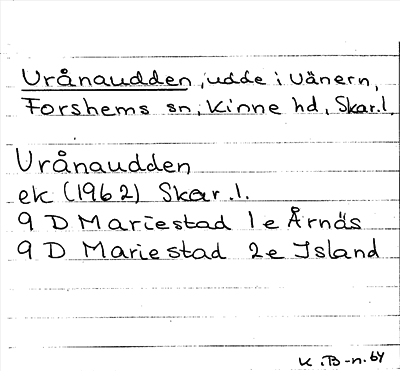 Urånaudden, udde i Vänern,
Forshems sn, Kinne hd, Skar.l.
Urånaudden
ek (1962) Skar.l.
9 D Mariestad 1e Årnäs
9 D Mariestad 2e Island
K.B-n. 64